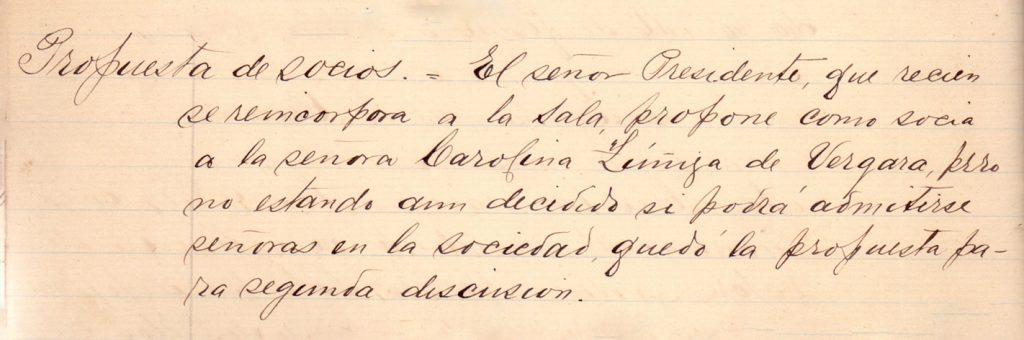 Propuesta de socios. = El señor Presidente, que recien
se reincorpora a la sala, propone como socia
a la señora Carolina de Vergara, pero
no estando aun decidido si podrá admitirse
señoras en la sociedad, quedó la propuesta pa-
ra segunda discusion.